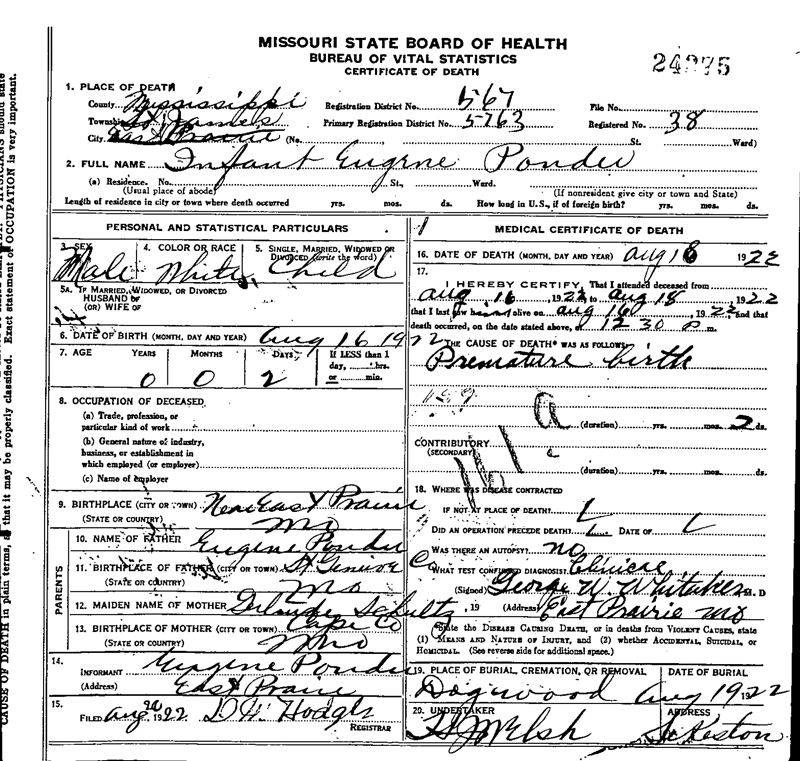 MISSOURI STATE BOARD OF HEALTH
BUREAU OF VITAL STATISTICS
CERTIFICATE OF DEATH
24375
1. PLACE OF DEATH
County Mississippi Registration District No. 567 File No.
Township St James Primary Registration District No. 5763 Registered No. 38
City East Prairie (No. St. Ward)
2. FULL NAME Infant Eugene Ponder
(a) Residence. No. St., Ward.
(Usual place of abode) (If nonresident give city or town and State)
Length of residence in city or town where death occurred yrs. mos. ds. How long in U.S., if of foreign birth? yrs. mos. ds.
PERSONAL AND STATISTICAL PARTICULARS
3. SEX Male
4. COLOR OR RACE White
5. SINGLE, MARRIED, WIDOWED OR DIVORCED (write the word) Child
5A. IF MARRIED, WIDOWED, OR DIVORCED
HUSBAND OF
(OR) WIFE OF
6. DATE OF BIRTH (MONTH, DAY AND YEAR) Aug 16 1922
7. AGE YEARS MONTHS DAYS If LESS than 1
day, hrs.
or min.
0 0 2
8. OCCUPATION OF DECEASED
(a) Trade, profession, or
particular kind of work
(b) General nature of industry,
business, or establishment in
which employed (or employer)
(c) Name of employer
9. BIRTHPLACE (CITY OR TOWN) Near East Prairie
(STATE OR COUNTRY) Mo
PARENTS
10. NAME OF FATHER Eugene Ponder
11. BIRTHPLACE OF FATHER (CITY OR TOWN) St Genieve
(STATE OR COUNTRY) Mo
12. MAIDEN NAME OF MOTHER Schultz
13. BIRTHPLACE OF MOTHER (CITY OR TOWN) Cape Co
(STATE OR COUNTRY) Mo
14.
INFORMANT Eugene Ponder
(Address) East Prairie
15.
FILED Aug 20 1922 D. W. Hodges
REGISTRAR
MEDICAL CERTIFICATE OF DEATH
16. DATE OF DEATH (MONTH, DAY AND YEAR) Aug 18 1922
17.
I HEREBY CERTIFY, That I attended deceased from
Aug 16, 1922 to Aug 18, 1922
that I last saw him alive on Aug 16, 1922 and that
death occurred, on the date stated above, at 12 30 P m.
THE CAUSE OF DEATH* WAS AS FOLLOWS
Premature birth
159
161a
(duration) yrs. mos. 2 ds.
CONTRIBUTORY
(SECONDARY)
(duration) yrs. mos. ds.
18. WHERE WAS DISEASE CONTRACTED
IF NOT AT PLACE OF DEATH?
DID AN OPERATION PRECEDE DEATH? DATE OF
WAS THERE AN AUTOPSY? no
WHAT TEST CONFIRMED DIAGNOSIS? Clinical
(Signed) George W. Whitaker M. D
, 19 (Address) East Prairie Mo
*State the DISEASE CAUSING DEATH, or in deaths from VIOLENT CAUSES, state
(1) MEANS AND NATURE OF INJURY, and (2) whether ACCIDENTAL, SUICIDAL, or
HOMICIDAL. (See reverse side for additional space.)
19. PLACE OF BURIAL, CREMATION, OR REMOVAL DATE OF BURIAL
Dogwood Aug 19 1922
20. UNDERTAKER ADDRESS
H J Welsh Sikeston
PHYSICIANS should state
CAUSE OF DEATH in plain terms, so that it may be properly classified. Exact statement of OCCUPATION is very important.